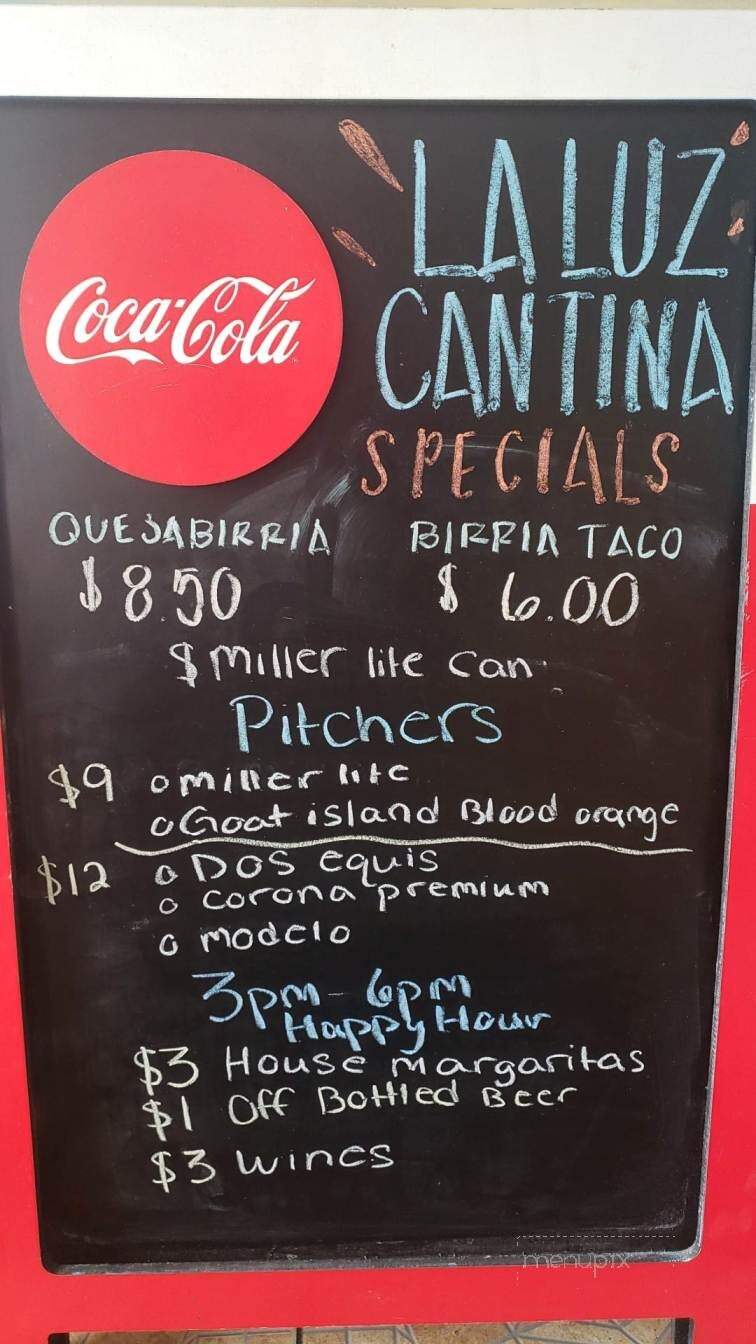 Coca-Cola
LA LUZ
CANTINA
SPECIALS
QUESABIRRIA BIRRIA TACO
$8.50 $6.00
$ miller lite can
Pitchers
$9 o miller lite
o Goat island Blood orange
$12 o DOS equis
o corona premium
o modelo
3pm - 6pm
Happy Hour
$3 House margaritas
$1 Off Bottled Beer
$3 wines
menupix